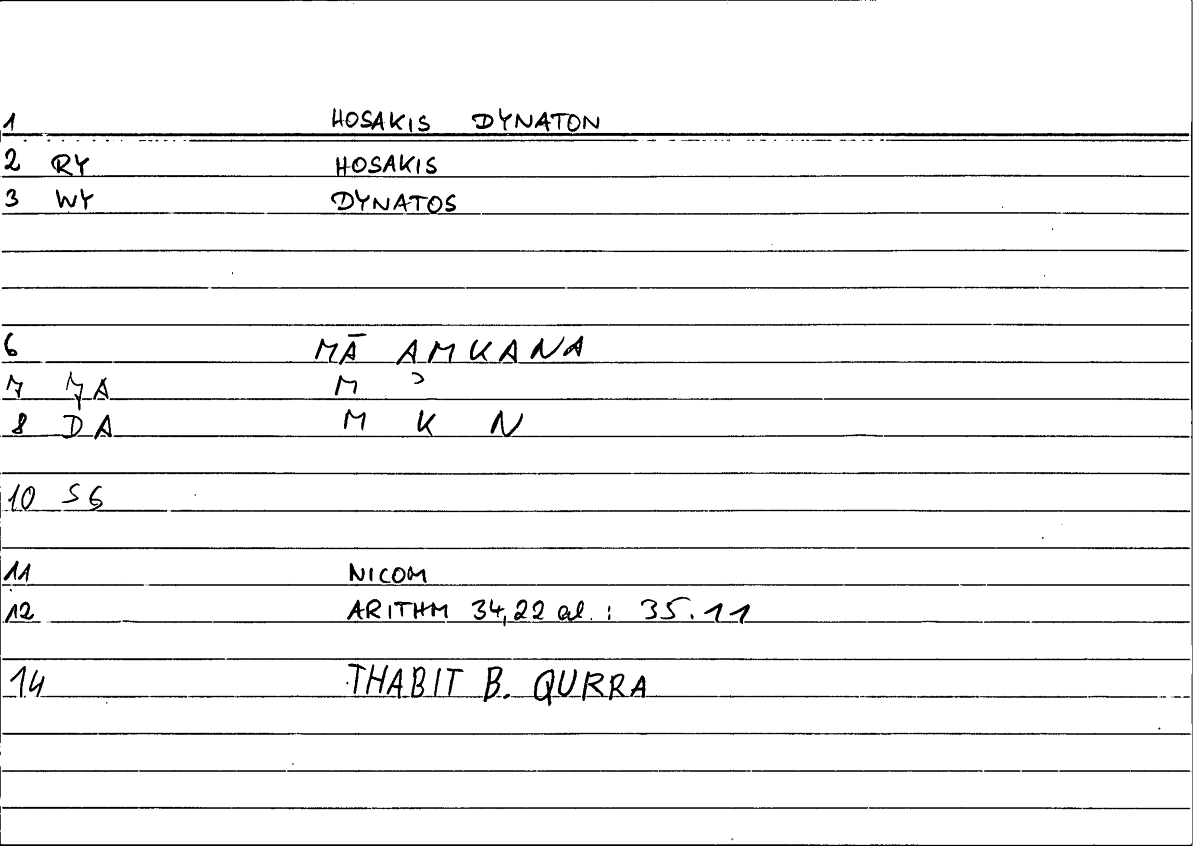 1 HOSAKIS DYNATON
2 RY HOSAKIS
3 WY DYNATOS
6 MĀ AMKANA
7 ZA M ʾ
8 DA M K N
10 SG
11 NICOM
12 ARITHM 34,22 al. : 35.11
14 THABIT B. QURRA